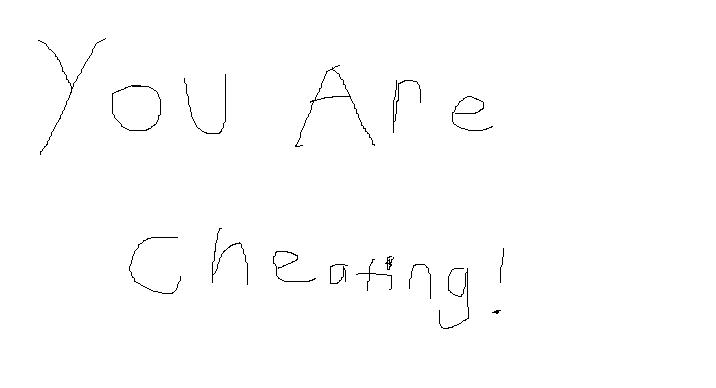 You Are
Cheating!